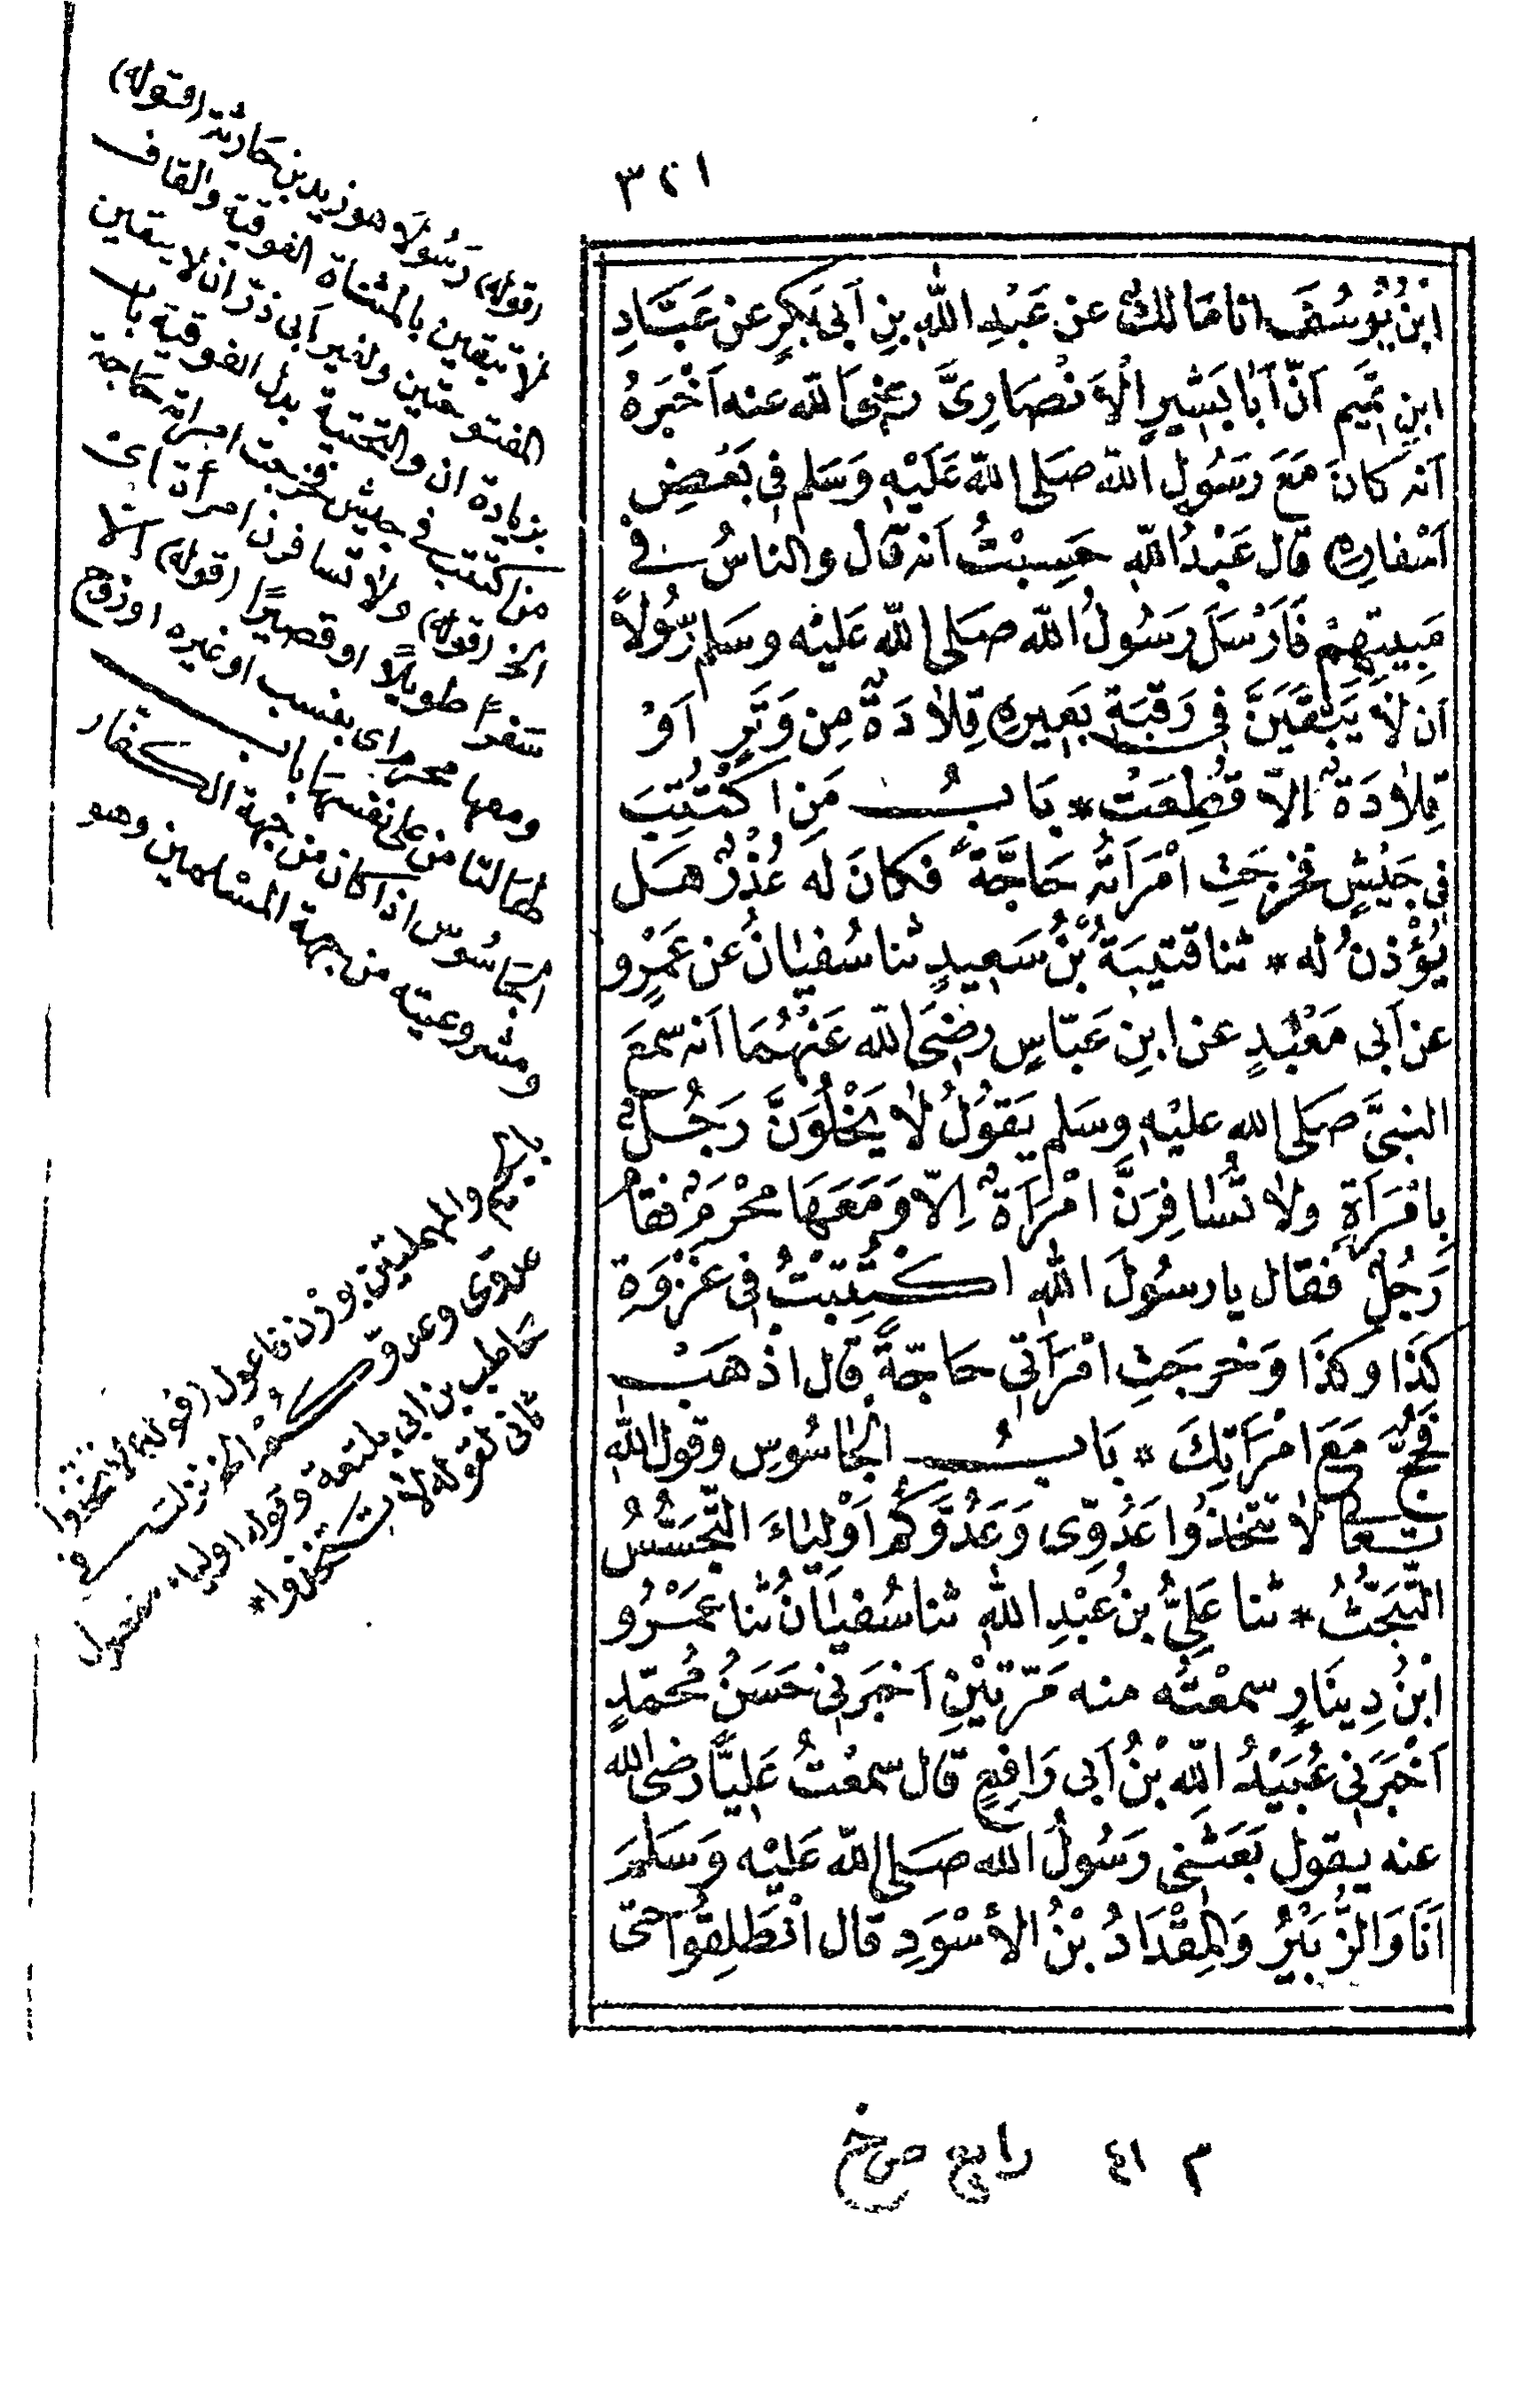 ٣٢١
ابْنُ يُوسُفَ انا مَالكٌ عن عَبْدِ اللهِ بنِ اَبى بَكرٍ عن عَبَّادِ
ابنِ تَميمٍ اَنّ اَبَا بَشِيرٍ الْاَنْصَارِىَّ رضى الله عنه اَخْبَرَهُ
اَنه كانَ مَعَ رَسُولِ الله صَلى اللهُ عَلَيْهِ وَسَلم فى بَعْضِ
اَسْفارِهِ قال عَبْدُ اللهِ حَسِبْتُ اَنه قال والناسُ فى
مَبِيتِهِمْ فَاَرْسَلَ رَسُولُ الله صَلى الله عَليْه وسَلم رَسُولاً
اَن لاَ يَبْقَيَنَّ فى رَقَبَةِ بَعِيرِهِ قِلاَدَةٌ مِن وَتَرٍ اَوْ
قِلاَدَةٌ اِلاَّ قُطِعَتْ * بَابُ مَنِ اكْتُتِبَ
فى جَيْشٍ فَخرجَتِ امْرَاَتُه حَاجَّةً فكانَ لَه عُذْرٌ هَل
يُؤْذنُ له * ثنا قتيبَةُ بْنُ سَعِيدٍ ثنا سُفيانُ عن عَمْرٍو
عن اَبى مَعْبَدٍ عن ابنِ عَبّاسٍ رضىَ الله عَنْهُمَا اَنه سَمعَ
النبىَّ صَلى الله عليْهِ وسَلم يَقوُلُ لاَ يَخْلُوَنَّ رَجُلٌ
بامْرَاَةٍ ولا تُسَافِرَنَّ امْرَاَةٌ اِلاّ وَمَعَهَا مَحْرَمٌ فقامَ
رَجُلٌ فقال يا رسُولَ اللهِ اكْتُتِبْتُ فى غَزْوَةِ
كَذَا وكَذَا وَخرجَتِ امْرَاَتى حَاجّةً قال اذْهَبْ
فَحُجَّ مَعَ امْرَاَتِكَ * بَابُ الجَاسُوسِ وقول اللهِ
تعَالى لاَ تَتَّخِذُوا عَدُوِّى وَعَدُوَّكُمْ اَوْلِيَاءَ التَّجَسُّسُ
التَّبَحُّثُ * ثنا عَلِىُّ بنُ عَبْدِ اللهِ ثنا سُفيَانُ ثنا عَمْرُو
ابْنُ دِينَارٍ سمعْتُه منه مَرّتيْنِ اَخبَرَنى حَسَنُ مُحَمّدٍ
اَخْبَرَنى عُبَيْدُ اللهِ بْنُ اَبى رَافِعٍ قال سمعْتُ عَلِيًّا رضى الله
عنه يقول بَعَثَنى رَسُولُ الله صَلى الله عَليْه وَسَلمَ
اَنَا وَالزُّبَيْرُ وَالمِقْدَادُ بْنُ الأسْوَدِ قال انْطَلِقُوا حتى
(قوله) رَسُولا هو زيد بن حَارثة (قوله)
لا تبقين بالمثناة الفوقية والقاف
المفتوحتين ولغير اَبى ذر ان لا يبقين
بزيادة ان والتحتية بدل الفوقية باب
من اكتتب فى جيش فخرجت امراته حَاجة
الخ (قوله) ولا تسافرن امرأة اى
سَفرًا طويلًا او قصيرًا (قوله) الا
ومعها محرم اى بنسب او غيره او زوج
لها لتامن على نفسها باب
الجَاسُوس اذا كان من جهة الكفار
ومشروعيته من جهة المسْلمين وهو
بالجيم والمهملتين بوزن فاعول (قوله) لا تتخذوا
عدوّى وعدوّكُمْ الخ نزلت فى
حَاطب بن ابى بلتعة وقوله اولياء مفعول
ثانى لقوله لا تتخذوا *
م ٤١ رابع ص خ